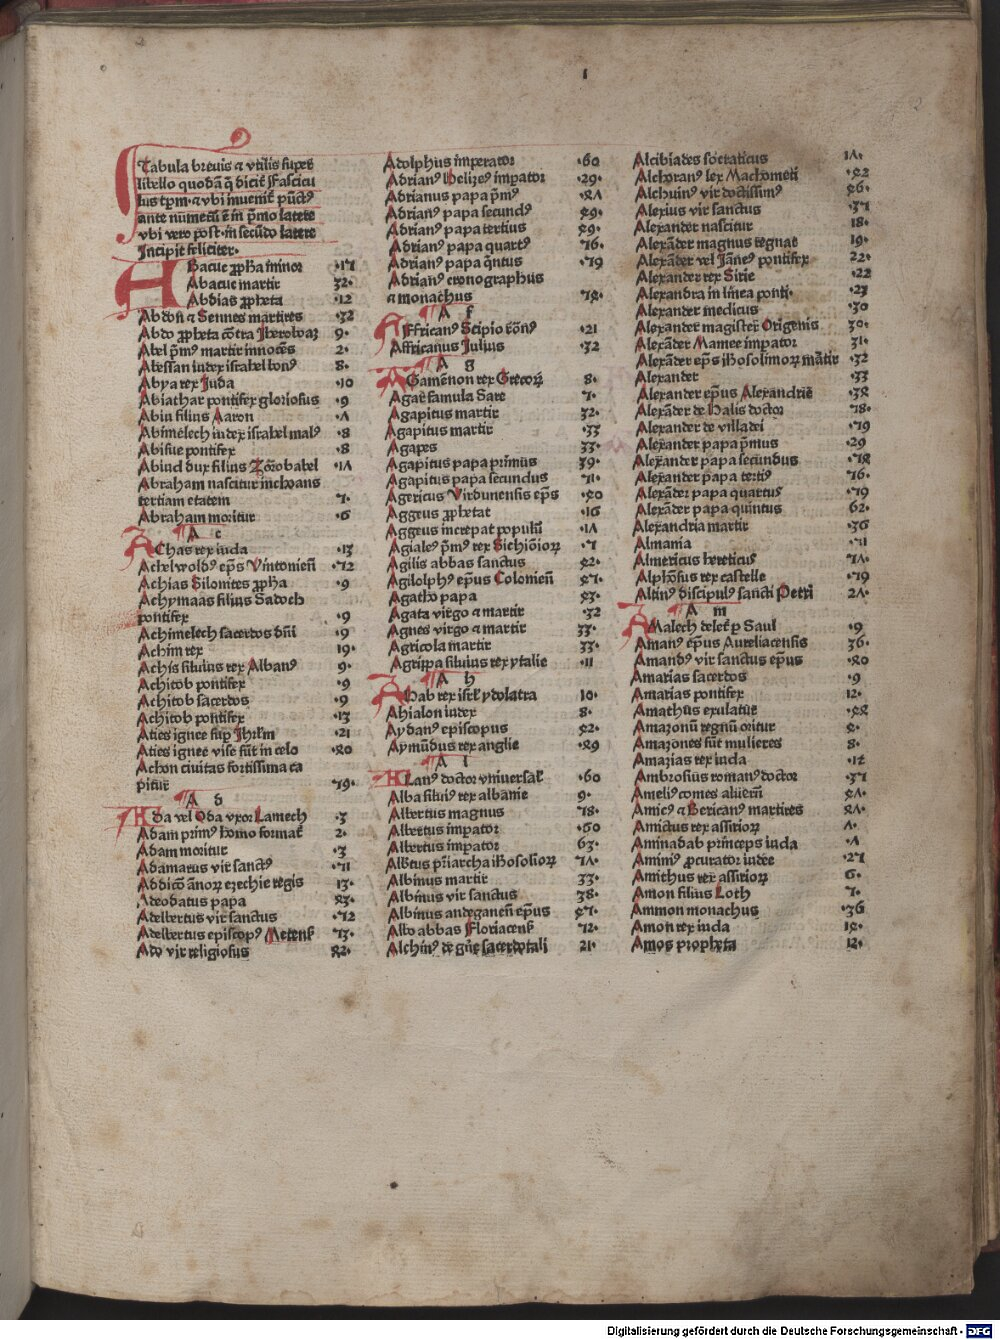 1
Tabula breuis ⁊ vtilis super
libello quodã q̃ dicit᷑ Fascicu
lus tp̃m· ⁊ vbi inuenit᷑ pũctꝰ
ante numerũ ẽ in p̃mo latere
vbi vero post· in secũdo latere
Incipit feliciter·
Abacuc ꝓpha minor ·17
Abacuc martir 32·
Abdias ꝓpheta ·12
Abdon ⁊ Sennes martires ·32
Abdo ꝓpheta cõtra Iheroboaꝫ 9·
Abel p̃mꝰ martir innocẽs 2·
Abessan iudex israhel bonꝰ 8·
Abya rex Iuda ·10
Abiathar pontifex gloriosus ·9
Abiu filius Aaron ·Λ
Abimelech iudex israhel malꝰ ·8
Abisue pontifex ·8
Abiud dux filius Zorobabel ·1Λ
Abraham nascitur inchoans
tertiam etatem 7·
Abraham moritur ·6
A c
Achas rex iuda ·13
Achelwoldꝰ ep̃s Vintonieñ ·72
Achias Silonites ꝓpha ·9
Achymaas filius Sadoch
pontifex ·9
Achimelech sacerdos dñi ·9
Achim rex 19·
Achis siluius rex Albanꝰ 9·
Achitob pontifex ·9
Achitob sacerdos ·9
Achitob pontifex ·13
Acies ignee sup Ihrl̃m ·21
Acies ignee vise sũt in celo ·ꝝ0
Achon ciuitas fortissima ca
pitur 79·
A d
Ada vel Oda vxor Lamech ·3
Adam primꝰ homo format᷑ 2·
Adam moritur ·3
Adamatus vir sanctꝰ ·71
Addicõ ãnoꝝ ezechie regis 13·
Adeodatus papa ꝝ3·
Adelbertus vir sanctus ·72
Adelbertus episcopꝰ Metens̃ 73·
Ado vir religiosus ꝝ2·
Adolphus imperator ·60
Adrianꝰ Helizeꝰ imꝑator ·29·
Adrianus papa p̃mꝰ ·ꝝΛ
Adrianꝰ papa secundꝰ ꝝ9·
Adrianꝰ papa tertius ꝝ9·
Adrianꝰ papa quartꝰ 76·
Adrianꝰ papa q̃ntus ·79
Adrianꝰ cronographus
⁊ monachus ·7ꝝ·
A f
Affricanꝰ Scipio rõnꝰ ·21
Affricanus Julius ·32
A g
Agamẽnon rex Grecoꝝ 8·
Agar famula Sare 7·
Agapitus martir 32·
Agapitus martir ·33
Agapes 33·
Agapitus papa primus 39·
Agapitus papa secundus 71·
Agericus Virdunensis ep̃s ·ꝝ0
Aggeus ꝓphetat ·16
Aggeus increpat populũ ·1Λ
Agialeꝰ p̃mꝰ rex Sichiõioꝝ ·7
Agilis abbas sanctus ꝝ2·
Agilolphꝰ ep̃us Colonieñ ꝝ7·
Agatho papa ꝝ3·
Agata virgo ⁊ martir ·32
Agnes virgo ⁊ martir 33·
Agricola martir 33·
Agrippa siluius rex ytalie ·11
A h
Ahab rex isrl̃ ydolatra 10·
Ahialon iudex 8·
Aydanꝰ episcopus ꝝ2·
Aymũdus rex anglie ·ꝝ9
A l
Alanꝰ doctor vniuersal̃ ·60
Alba siluiꝰ rex albanie 9·
Albertus magnus 78·
Albertus imꝑator ·60
Albertus imꝑator 63·
Alb̃tus pr̃iarcha iherosolioꝝ 7Λ·
Albinus martir 33·
Albinus vir sanctus 38·
Albinus andeganeñ ep̃us ꝝ7·
Albo abbas Floriacens̃ 72·
Alchimꝰ de gñe sacerdotali 21·
Alcibiades socraticus 1Λ·
Alchoranꝰ lex Machometi ·ꝝ2
Alchuinꝰ vir doctissimꝰ ꝝ6·
Alexius vir sanctus ·37
Alexander nascitur 18·
Alexãder magnus regnat 19·
Alexãder vel Janeꝰ pontifex 22·
Alexander rex Sirie ·22
Alexandra in linea ponti· ·23
Alexander medicus ·30
Alexander magister Origenis 30·
Alexãder Mamee imꝑator 31·
Alexãder ep̃s iherosolimoꝝ mãtir ·32
Alexander ·33
Alexander ep̃us Alexandriẽ ·3ꝝ
Alexãder de Halis doctor 78·
Alexander de villa dei ·79
Alexander papa p̃mus ·29
Alexander papa secundus ·7ꝝ
Alexander papa tertiꝰ 76·
Alexãder papa quartus ·79
Alexãder papa quintus 62·
Alexandria martir ·36
Almania ·71
Almericus hereticus 7Λ·
Alphõsus rex castelle ·79
Altinꝰ discipulꝰ sancti Petri 2Λ·
A m
Amalech delet᷑ ꝑ Saul ·9
Amanꝰ ep̃us Aureliacensis 36·
Amandꝰ vir sanctus ep̃us ·ꝝ0
Amarias sacerdos ·9
Amarias pontifex 12·
Amathus exulatur ·ꝝꝝ
Amazonũ regnũ oritur ꝝ·
Amazones sũt mulieres 8·
Amazias rex iuda ·12
Ambrosius romanꝰ doctor ·37
Ameliꝰ comes aluerñ ꝝΛ·
Amicꝰ ⁊ Bericanꝰ martires ꝝΛ·
Amictus rex assirioꝝ Λ·
Aminadab princeps iuda ·Λ
Aminiꝰ ꝓcurator iudee ·27
Amithus rex assirioꝝ 6·
Amon filius Loth 7·
Ammon monachus ·36
Amon rex iuda 1ꝝ·
Amos propheta 12·
Digitalisierung gefördert durch die Deutsche Forschungsgemeinschaft - DFG